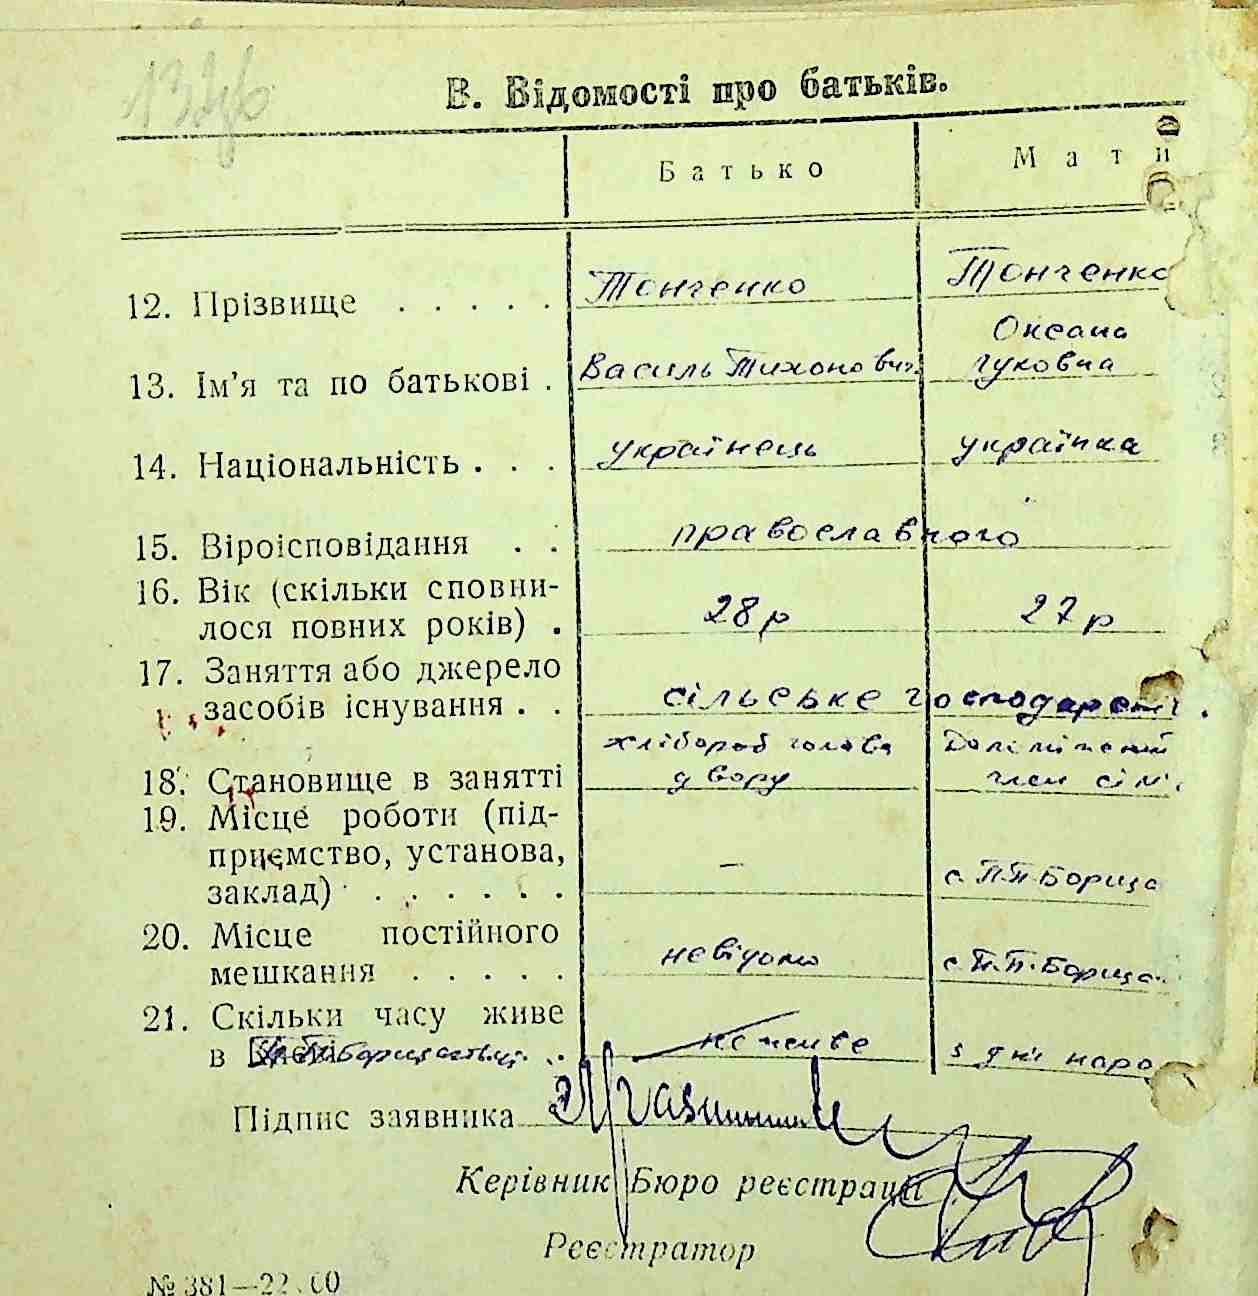 В. Відомості про батьків.
Батько Мати
12. Прізвище . . . . . Тонченко Тонченко
Оксана
13. Ім'я та по батькові . Василь Тихонович Луковна
14. Національність . . . українець українка
15. Віроісповідання . . православного
16. Вік (скільки сповни-
лося повних років) . 28 р 27 р
17. Заняття або джерело
засобів існування . . сільське господарст.
хлібороб голова член сім.
18. Становище в занятті двору
19. Місце роботи (під-
приємство, установа,
заклад) . . . . . . — с. П.П. Борща
20. Місце постійного
мешкання . . . . . невідомо с. П.П. Борща.
21. Скільки часу живе
в не живе з дня наро
Підпис заявника
Керівник Бюро реєстрації
Реєстратор
№ 381—22.